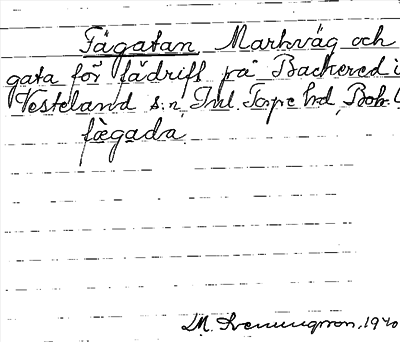 Fägatan Markväg och
gata för fädrift på Backered i
Vesteland s:n, Inl. Torpe hd, Boh. l
fægada
M. Svenungsson, 1940